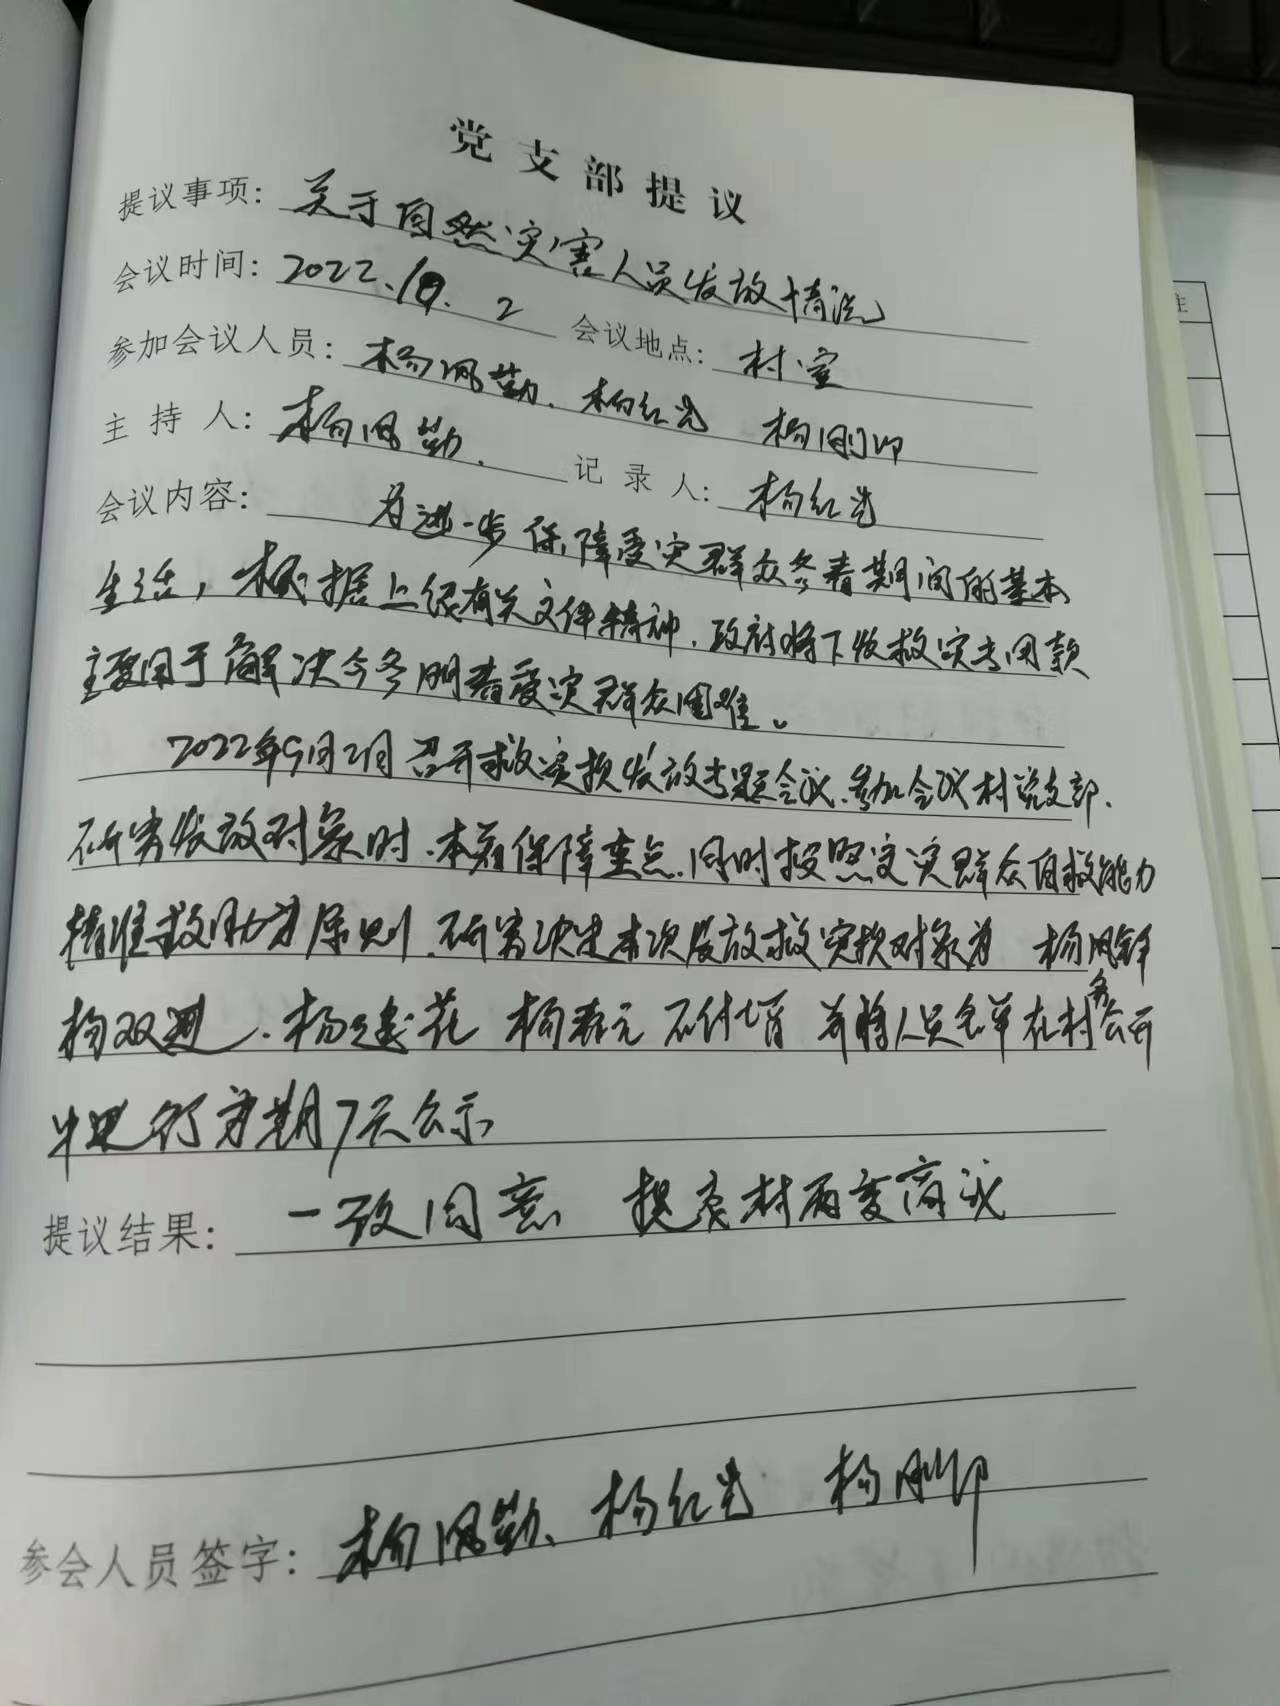 党支部提议
提议事项：关于自然灾害人员发放情况
会议时间：2022.10.2 会议地点：村室
参加会议人员：杨凤勤、杨红光 杨刚印
主持人：杨凤勤. 记录人：杨红光
会议内容： 为进一步保障受灾群众冬春期间的基本
生活，根据上级有关文件精神.政府将下发救灾专用款
主要用于解决今冬明春受灾群众困难。
2022年9月2日召开救灾款发放专题会议、参加会议村党支部、
研究发放对象时.本着保障重点.同时按照受灾群众自救能力
精准救助为原则.研究决定本次发放救灾款对象为 杨凤
杨双进、杨 花 杨春元 并将人员名单在村务公开
中进行为期7天公示
提议结果：一致同意 提交村两委商议
参会人员签字：杨凤勤、杨红光 杨刚印